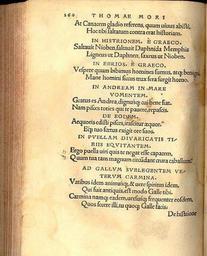 160 THOMAE MORI
At Canacem gladio referens, quum uiuus abisti,
Hoc tibi saltatum contra erat historiam.
IN HISTRIONEM. E GRAECO.
Saltauit Nioben, saltauit Daphnida Memphis
Ligneus ut Daphnen, saxeus ut Nioben.
IN EBRIOS. E GRAECO.
Vespere quum bibimus homines sumus, atque benigni
Mane homini siccus trux fera surgit homo.
IN ANDREAM IN MARE
VOMENTEM.
Gratus es Andrea, dignusque cui bene fiat.
Nam pisces toties qui te pauere,
DE EODEM.
Aequoris edisti pisces,
IN PUELLAM DIVARICATIS TI
BIIS EQUITANTEM.
Ergo puella uiri quis te negat esse capacem,
Quum tua tam magnum circundant crura caballum?
AD GALLUM SUBLEGENTEM VE
TERUM CARMINA.
Vatibus idem animusque, & uere spiritus idem,
Qui fuit antiquis, est modo Galle tibi.
Carmina namque eadem, uersusque frequenter eosdem,
Quos fecere illi, tu quoque Galle facis.
De histrione